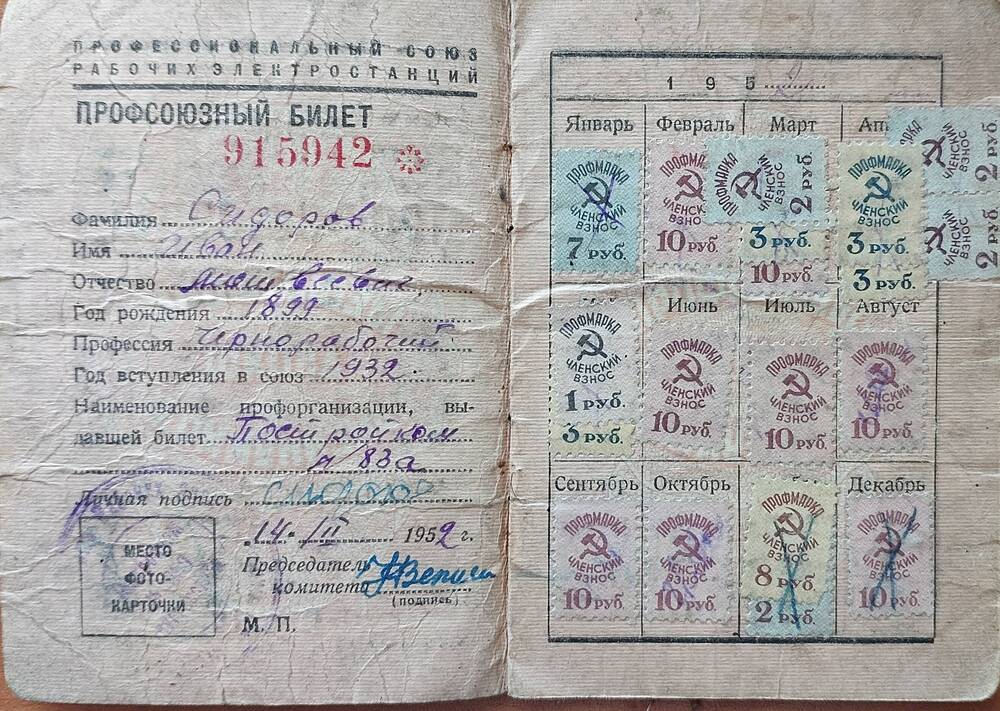 ПРОФЕССИОНАЛЬНЫЙ СОЮЗ
РАБОЧИХ ЭЛЕКТРОСТАНЦИЙ
ПРОФСОЮЗНЫЙ БИЛЕТ
915942
Фамилия Сидоров
Имя Иван
Отчество Матвеевич
Год рождения 1899
Профессия Чернорабочий
Год вступления в союз 1932
Наименование профорганизации, вы-
давшей билет Постройком
83а
Личная подпись
14 III 1952 г.
Председатель
комитета
(подпись)
МЕСТО
ФОТО-
КАРТОЧКИ
М. П.
195
Январь Февраль Март Ап
ПРОФМАРКА ЧЛЕНСКИЙ ВЗНОС 7 РУБ.
ПРОФМ ЧЛЕНСК ВЗНО 10 РУБ.
ПРОФМАРКА ЧЛЕНСКИЙ ВЗНОС 2 РУБ.
3 РУБ.
10 РУБ.
ПРОФМАРКА ЧЛЕНСКИЙ ВЗНОС 3 РУБ.
3 РУБ.
РКА ЧЛЕНСКИЙ ВЗНОС 2 РУБ.
ЧЛЕНСКИЙ ВЗНОС 2 РУБ.
Июнь Июль Август
ПРОФМАРКА ЧЛЕНСКИЙ ВЗНОС 1 РУБ.
3 РУБ.
ПРОФМАРКА ЧЛЕНСКИЙ ВЗНОС 10 РУБ.
ПРОФМАРКА ЧЛЕНСКИЙ ВЗНОС 10 РУБ.
ПРОФМАРКА ЧЛЕНСКИЙ ВЗНОС 10 РУБ.
Сентябрь Октябрь Декабрь
ПРОФМАРКА ЧЛЕНСКИЙ ВЗНОС 10 РУБ.
ПРОФМАРКА ЧЛЕНСКИЙ ВЗНОС 10 РУБ.
ПРОФМАРКА ЧЛЕНСКИЙ ВЗНОС 8 РУБ.
2 РУБ.
ПРОФМАРКА ЧЛЕНСКИЙ ВЗНОС 10 РУБ.